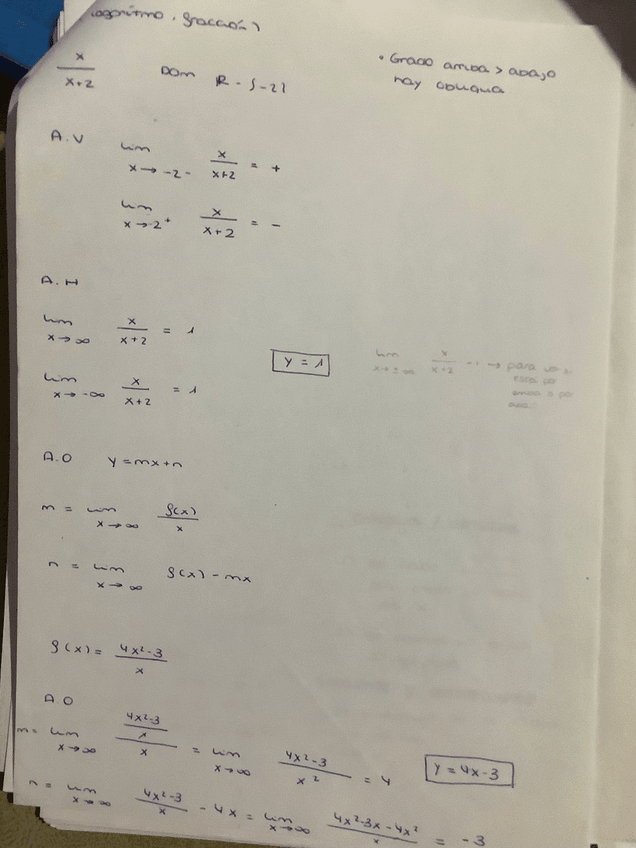 logaritmo, fracción)
x/(x+2) Dom R - {-2}
• Grado arriba > abajo
hay oblicua
A.V lim x→-2- x/(x+2) = +
lim x→-2+ x/(x+2) = -
A.H
lim x→∞ x/(x+2) = 1
y = 1
lim x→-∞ x/(x+2) = 1
lim x→±∞ x/(x+2) -1 → para
A.O y = mx+n
m = lim x→∞ f(x)/x
n = lim x→∞ f(x) - mx
f(x) = (4x²-3)/x
A.O
m = lim x→∞ ((4x²-3)/x)/x = lim x→∞ (4x²-3)/x² = 4
y = 4x-3
n = lim x→∞ (4x²-3)/x - 4x = lim x→∞ (4x²-3x-4x²)/x = -3